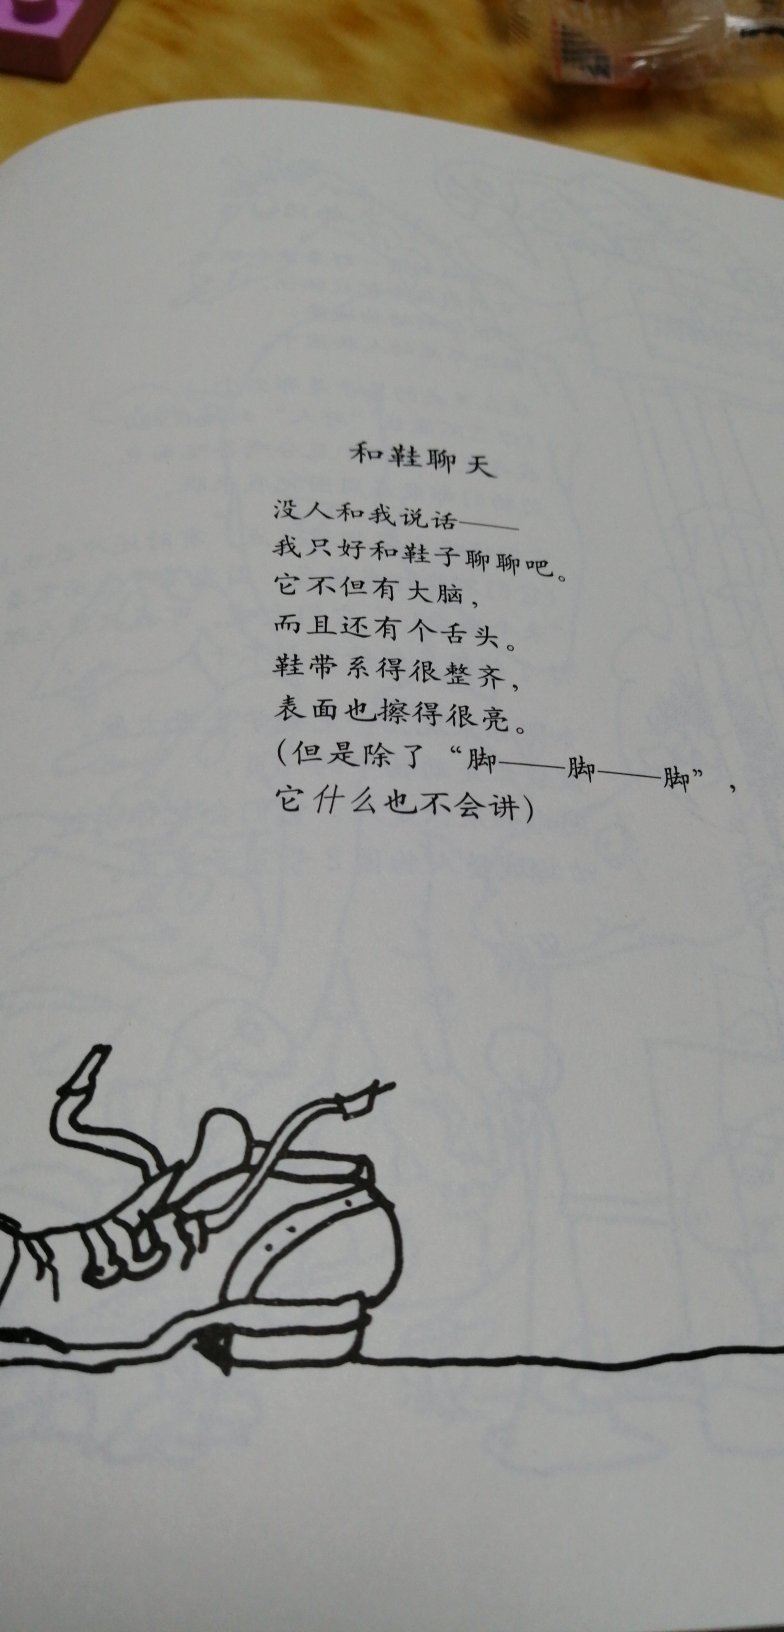 和鞋聊天
没人和我说话——
我只好和鞋子聊聊吧。
它不但有大脑，
而且还有个舌头。
鞋带系得很整齐，
表面也擦得很亮。
(但是除了“脚——脚——脚”，
它什么也不会讲)